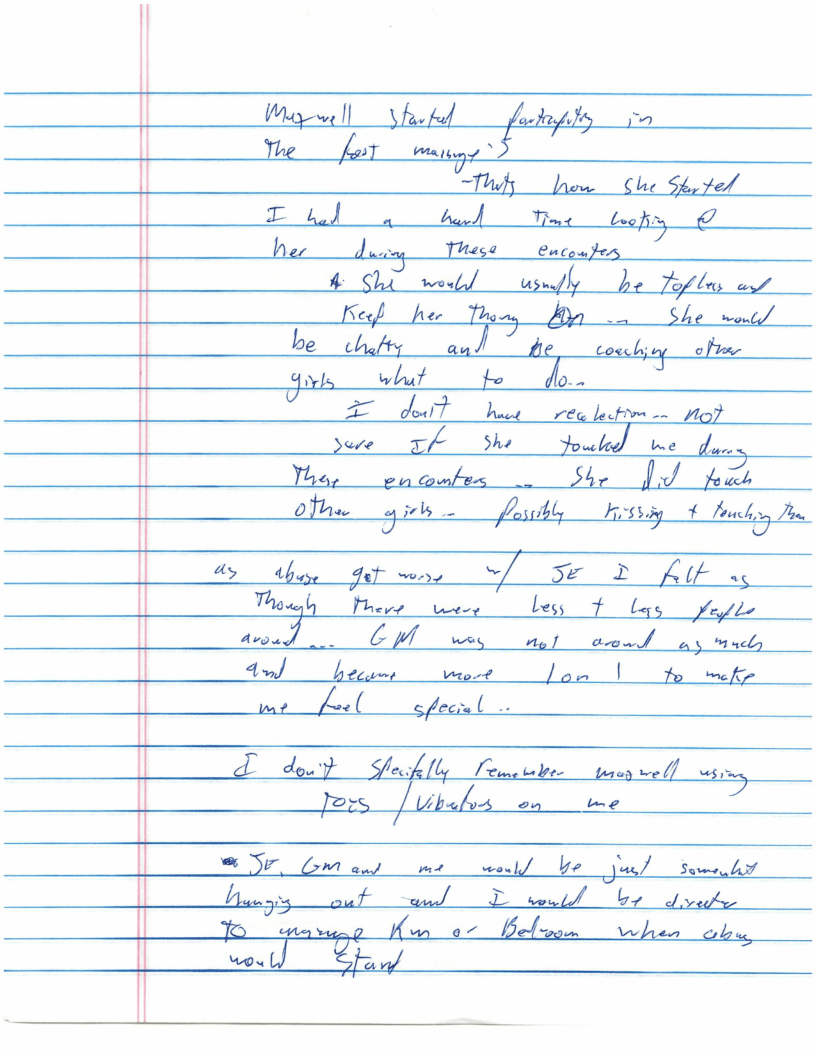 Maxwell started participating in
The foot massage's
-Thats how she started
I had a hard time looking @
her during these encounters
she would usually be topless and
Keep her thong on ... she would
be chatty and be coaching other
girls what to do...
I don't have recolection... not
sure If she touched me during
These encounters ... She did touch
other girls... Possibly Kissing + touching them
as abuse got worse w/ JE I felt as
Though there were less + less people
around... GM was not around as much
and became more 1 on 1 to make
me feel special...
I don't specifally remember maxwell using
Toys / vibrators on me
JE, GM and me would be just somewhat
hanging out and I would be directed
to massage Rm or Bedroom when abuse
would Start